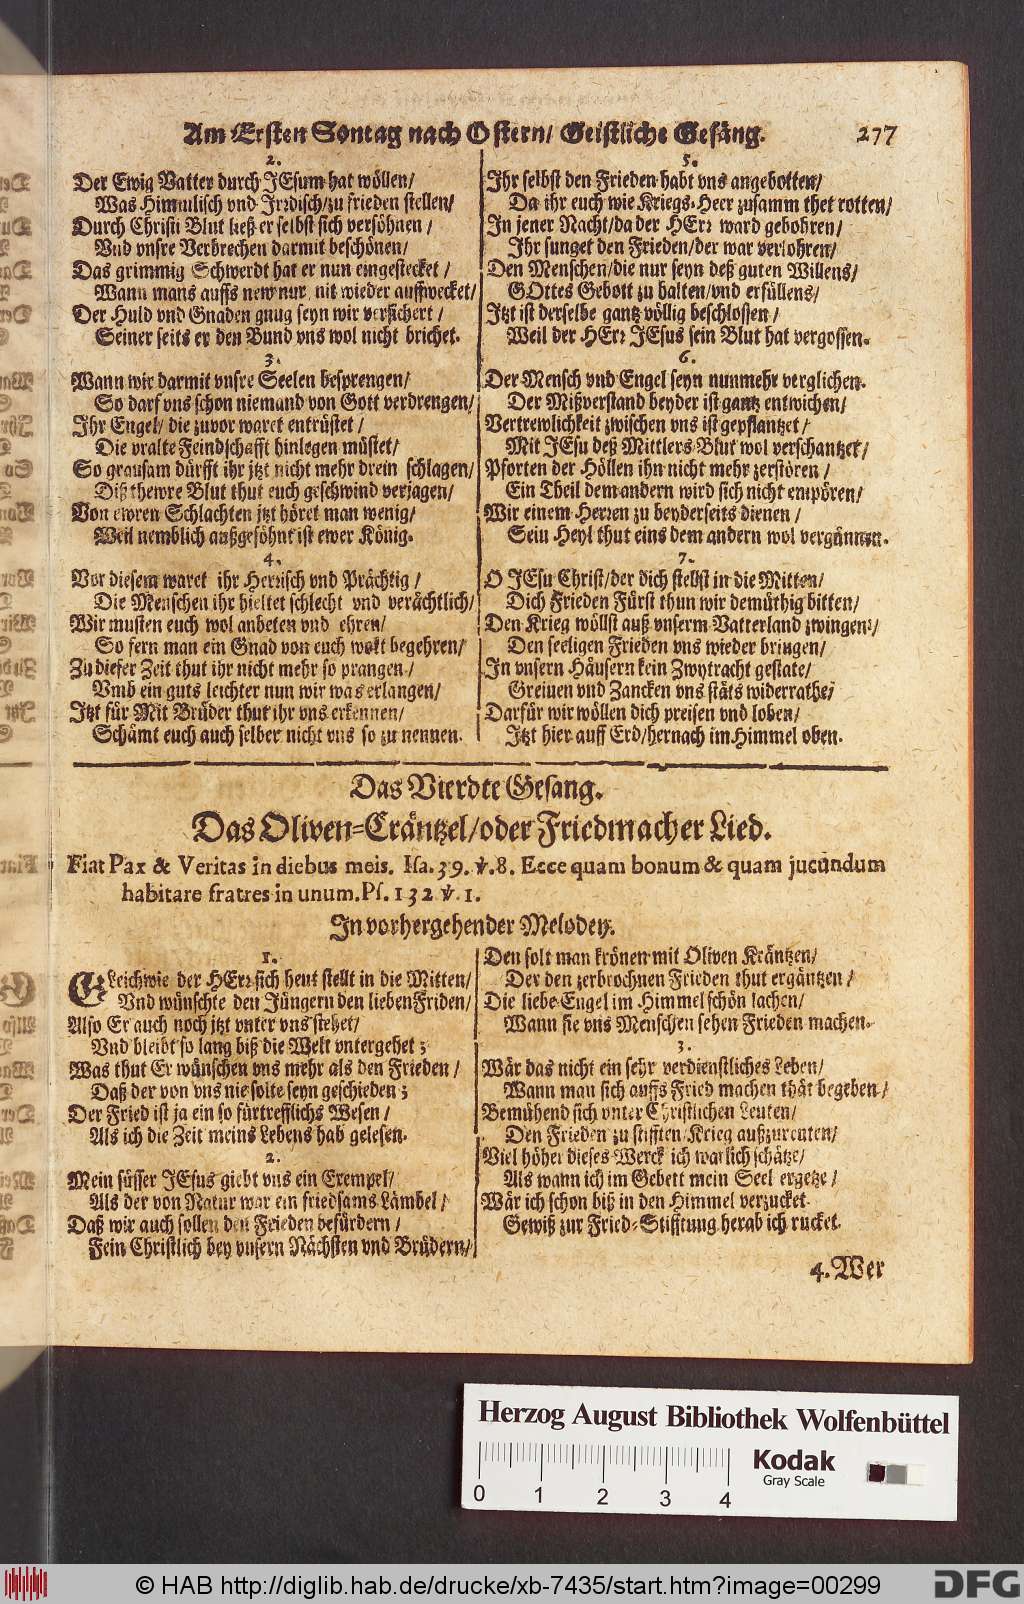 Am Ersten Sontag nach Ostern/ Geistliche Gesäng. 277
2.
Der Ewig Vatter durch JEsum hat wöllen/
Was Himmlisch vnd Irrdisch/zu frieden stellen/
Durch Christi Blut ließ er selbst sich versöhnen/
Vnd vnsre Verbrechen darmit beschönen/
Das grimmig Schwerdt hat er nun eingestecket/
Wann mans auffs new nur nit wieder auffwecket/
Der Huld vnd Gnaden gnug seyn wir versichert/
Seiner seits er den Bund vns wol nicht brichet.
3.
Wann wir darmit vnsre Seelen besprengen/
So darf vns schon niemand von Gott verdrengen/
Ihr Engel/ die zuvor waret entrüstet/
Die vralte Feindschafft hinlegen müstet/
So grausam dürfft ihr jtzt nicht mehr drein schlagen/
Diß thewre Blut thut euch geschwind verjagen/
Von ewren Schlachten jtzt höret man wenig/
Weil nemblich außgesöhnt ist ewer König.
4.
Vor diesem waret ihr Herrisch vnd Prächtig/
Die Menschen ihr hieltet schlecht vnd verächtlich/
Wir musten euch wol anbeten vnd ehren/
So fern man ein Gnad von euch wolt begehren/
Zu dieser Zeit thut ihr nicht mehr so prangen/
Vmb ein guts leichter nun wir was erlangen/
Itzt für Mit Brüder thut ihr vns erkennen/
Schämt euch auch selber nicht vns so zu nennen.
5.
Ihr selbst den Frieden habt vns angebotten/
Da ihr euch wie Kriegs-Heer zusamm thet rotten/
In jener Nacht/da der HErr ward gebohren/
Ihr sunget den Frieden/der war verlohren/
Den Menschen/die nur seyn deß guten Willens/
GOttes Gebott zu halten/vnd erfüllens/
Itzt ist derselbe gantz völlig beschlossen/
Weil der HErr JEsus sein Blut hat vergossen.
6.
Der Mensch vnd Engel seyn nunmehr verglichen.
Der Mißverstand beyder ist gantz entwichen/
Vertrewlichkeit zwischen vns ist gepflantzet/
Mit JEsu deß Mittlers Blut wol verschantzet/
Pforten der Höllen ihn nicht mehr zerstören/
Ein Theil dem andern wird sich nicht empören/
Wir einem Herren zu beyderseits dienen/
Sein Heyl thut eins dem andern wol vergünnen.
7.
O JEsu Christ/der dich stelbst in die Mitten/
Dich Frieden Fürst thun wir demüthig bitten/
Den Krieg wöllst auß vnserm Vatterland zwingen/
Den seeligen Frieden vns wieder bringen/
In vnsern Häusern kein Zwytracht gestate/
Greinen vnd Zancken vns stäts widerrathe/
Darfür wir wöllen dich preisen vnd loben/
Itzt hier auff Erd/hernach im Himmel oben.
Das Vierdte Gesang.
Das Oliven-Cräntzel/oder Friedmacher Lied.
Fiat Pax & Veritas in diebus meis. Isa. 39. v. 8. Ecce quam bonum & quam jucundum
habitare fratres in unum. Ps. 132 v. 1.
In vorhergehender Melodey.
1.
GLeichwie der HErr sich heut stellt in die Mitten/
Vnd wünschte den Jüngern den lieben Friden/
Also Er auch noch jtzt vnter vns stehet/
Vnd bleibt so lang biß die Welt vntergehet;
Was thut Er wünschen vns mehr als den Frieden/
Daß der von vns nie solte seyn geschieden;
Der Fried ist ja ein so fürtrefflichs Wesen/
Als ich die Zeit meins Lebens hab gelesen.
2.
Mein süsser JEsus giebt vns ein Exempel/
Als der von Natur war ein friedsams Lämbel/
Daß wir auch sollen den Frieden befürdern/
Fein Christlich bey vnsern Nächsten vnd Brüdern/
Den solt man krönen mit Oliven Kräntzen/
Der den zerbrochnen Frieden thut ergäntzen/
Die liebe Engel im Himmel schön lachen/
Wann sie vns Menschen sehen Frieden machen.
3.
Wär das nicht ein sehr verdienstliches Leben/
Wann man sich auffs Fried machen thät begeben/
Bemühend sich vnter Christlichen Leuten/
Den Frieden zu stifften/Krieg außzureuten/
Viel höher dieses Werck ich warlich schätze/
Als wann ich im Gebett mein Seel ergetze/
Wär ich schon biß in den Himmel verzucket.
Gewiß zur Fried-Stifftung herab ich rucket.
4. Wer
Herzog August Bibliothek Wolfenbüttel
Kodak
Gray Scale
0 1 2 3 4
© HAB http://diglib.hab.de/drucke/xb-7435/start.htm?image=00299
DFG